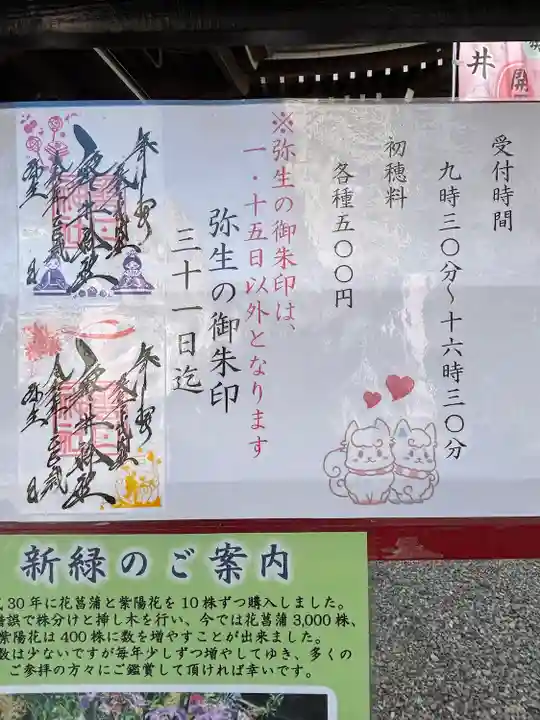 井
開
受付時間
九時三〇分～十六時三〇分
初穂料
各種五〇〇円
※弥生の御朱印は、
一・十五日以外となります
弥生の御朱印
三十一日迄
新緑のご案内
30年に花菖蒲と紫陽花を10株ずつ購入しました。
誤で株分けと挿し木を行い、今では花菖蒲3,000株、
紫陽花は400株に数を増やすことが出来ました。
数は少ないですが毎年少しずつ増やしてゆき、多くの
ご参拝の方々にご鑑賞して頂ければ幸いです。